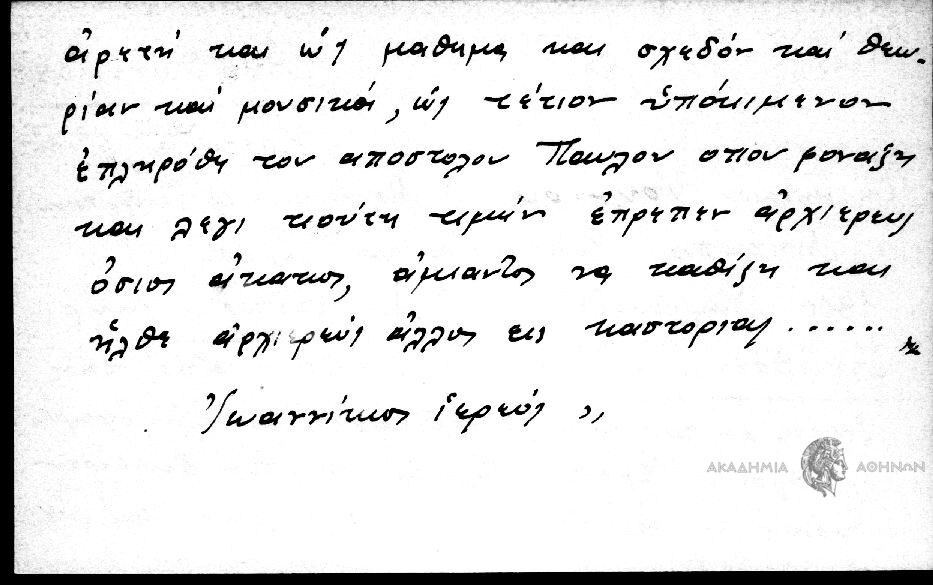 ἀρετή και ὡς μαθημα και σχεδόν καί θεω-
ρίαν καί μουσικά, ὡς τέτιον ὑπόκιμενον
ἐπληρόθη τον αποστολον Παυλον οπου φοναζη
και λεγι τιούτη τιμήν ἐπρεπεν ἀρχιερευς
ὅσιος ἀκακος, ἀμιαντος να καθίζη και
ἦλθε ἀρχιερεύς ἄλλος εις καστοριαν ......
Ἰωαννίκιος ἱερεύς ,,
ΑΚΑΔΗΜΙΑ ΑΘΗΝΩΝ